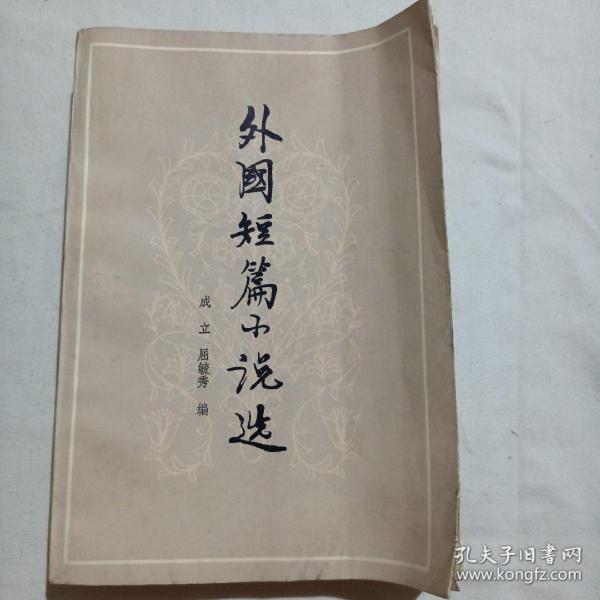 外國短篇小说选
成立 屈毓秀 编
孔夫子旧书网
www.kongfz.com